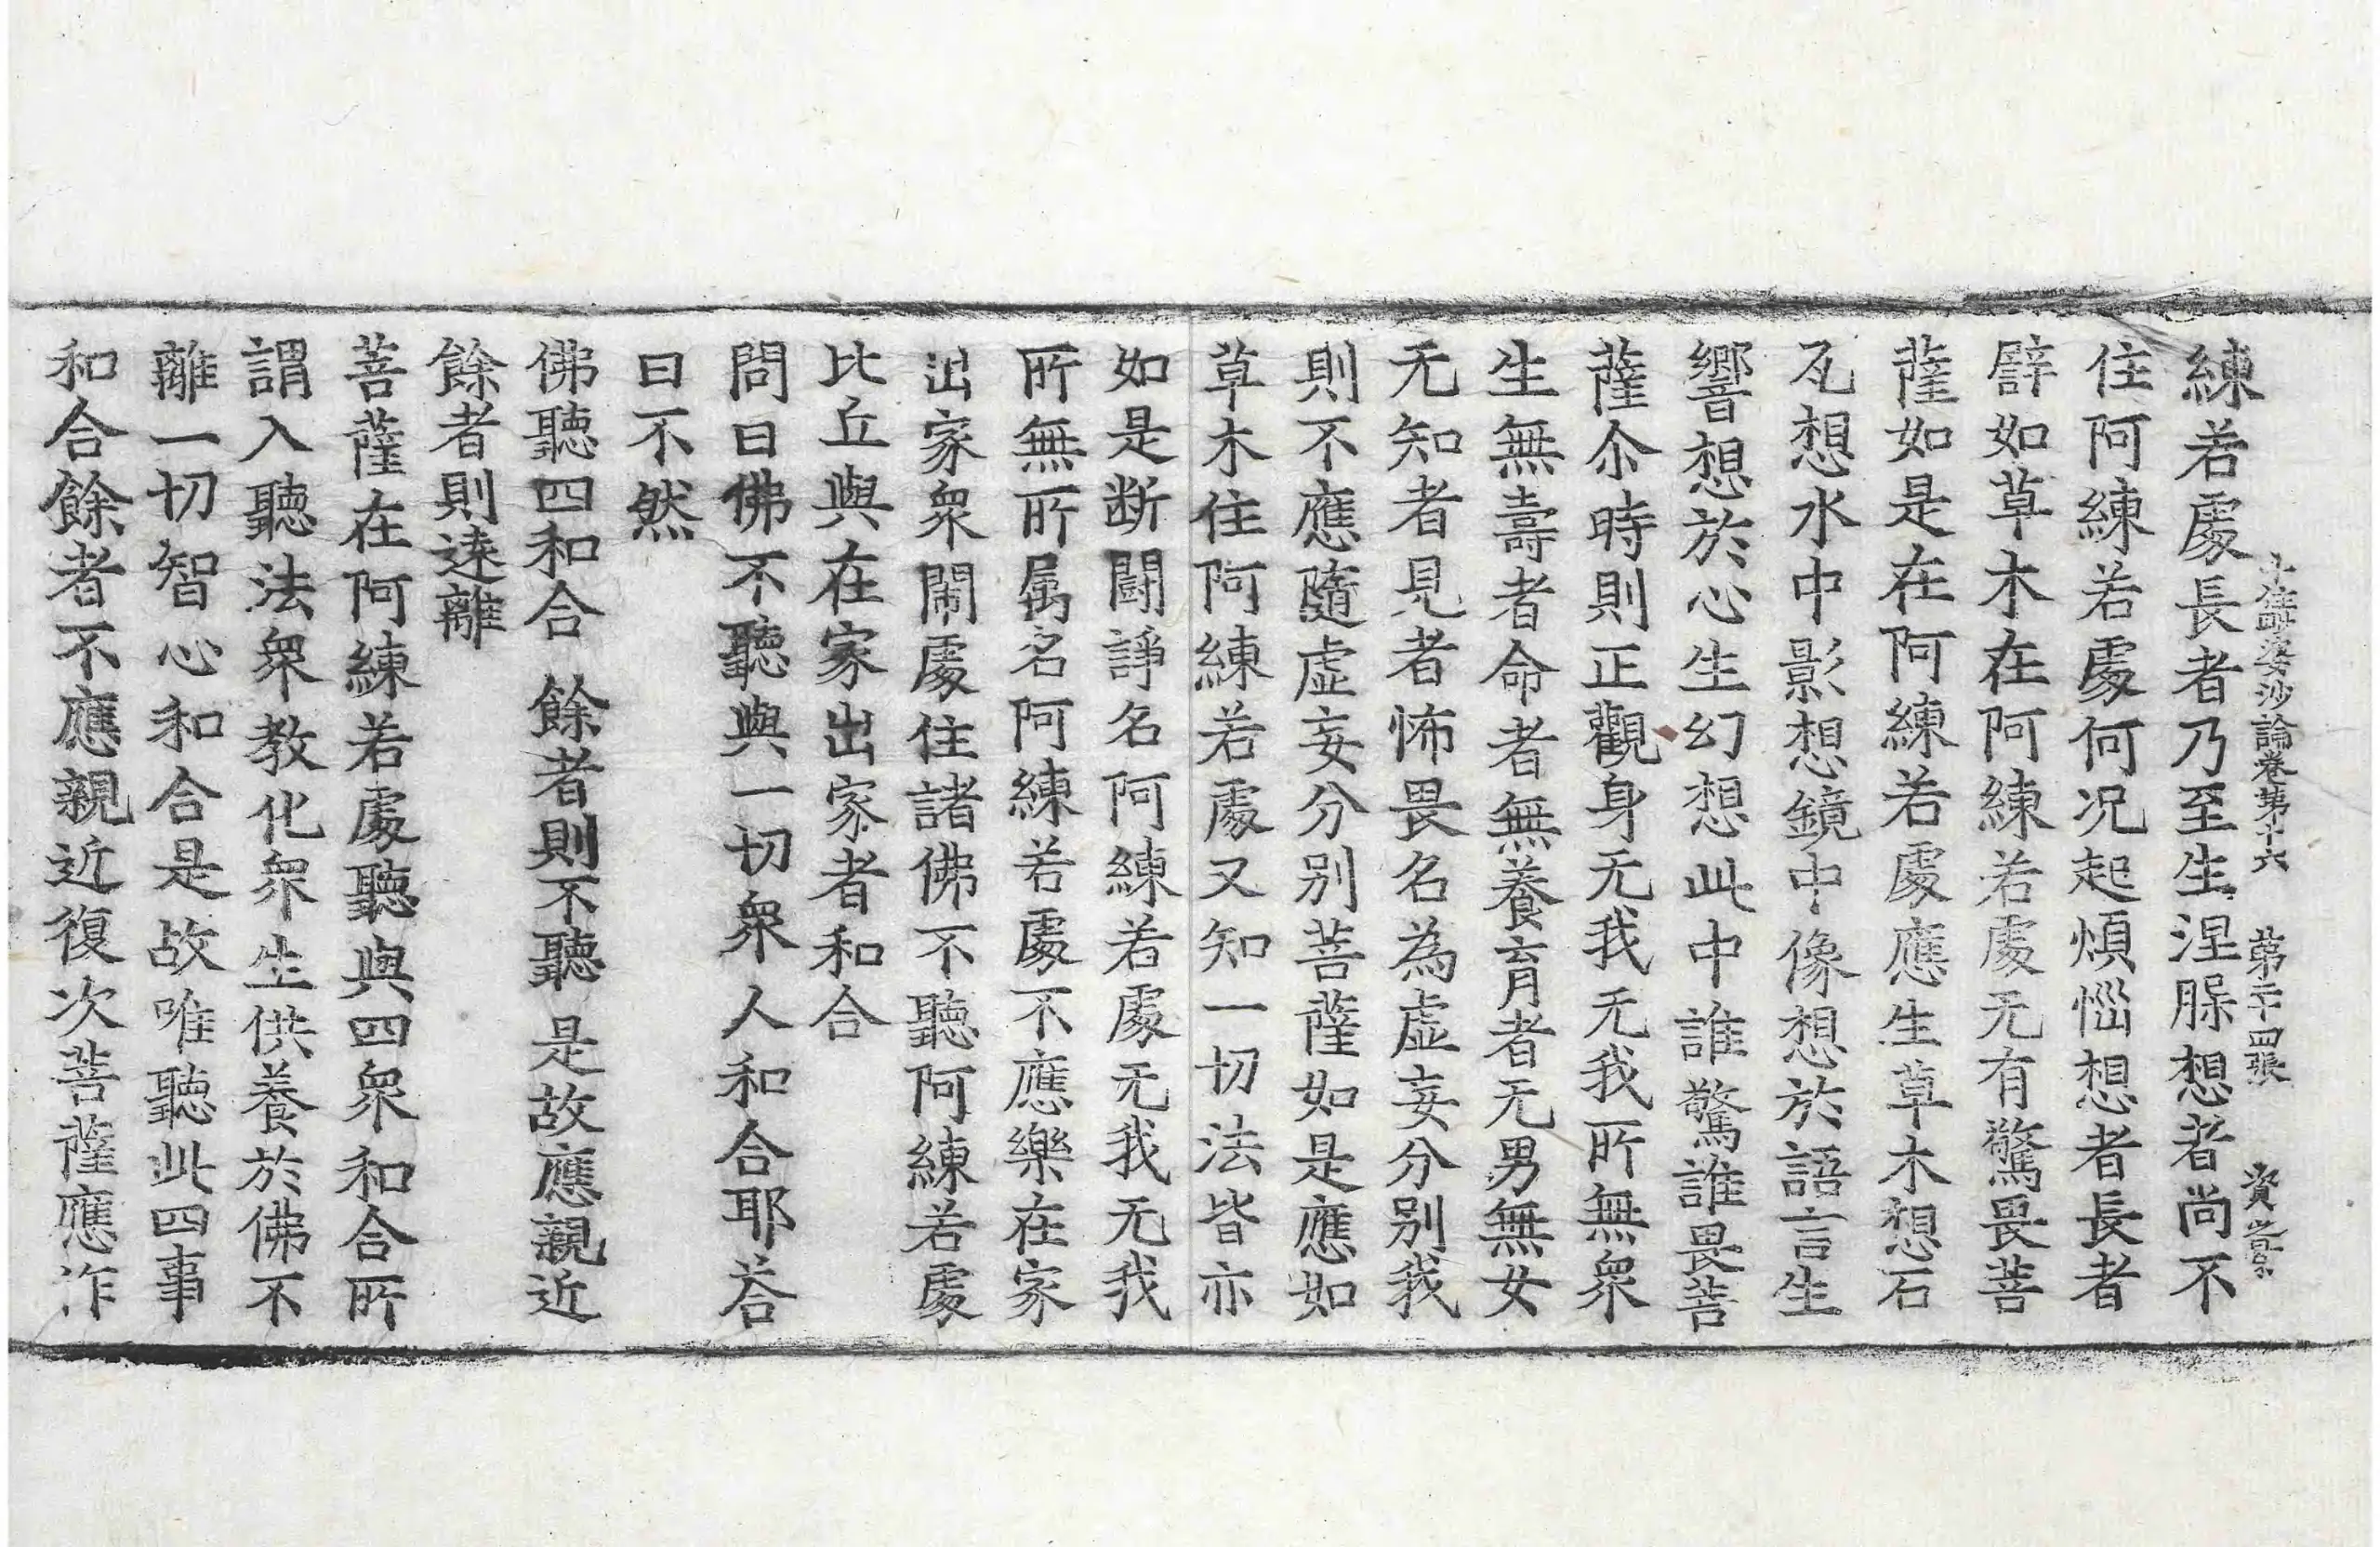 十住毗婆沙論卷第十六 第二十四張 資
練若處長者乃至生涅脲想者尚不
住阿練若處何况起煩惱想者長者
譬如草木在阿練若處无有驚畏菩
薩如是在阿練若處應生草木想石
瓦想水中影想鏡中像想於語言生
響想於心生幻想此中誰驚誰畏菩
薩尒時則正觀身无我无我所無衆
生無壽者命者無養育者无男無女
无知者見者怖畏名為虚妄分别我
則不應隨虚妄分别菩薩如是應如
草木住阿練若處又知一切法皆亦
如是断鬪諍名阿練若處无我无我
所無所属名阿練若處不應樂在家
出家衆閙處住諸佛不聽阿練若處
比丘與在家出家者和合
問曰佛不聽與一切衆人和合耶荅
曰不然
佛聽四和合 餘者則不聽 是故應親近
餘者則逺離
菩薩在阿練若處聽與四衆和合所
謂入聽法衆教化衆生供養於佛不
離一切智心和合是故唯聽此四事
和合餘者不應親近復次菩薩應作